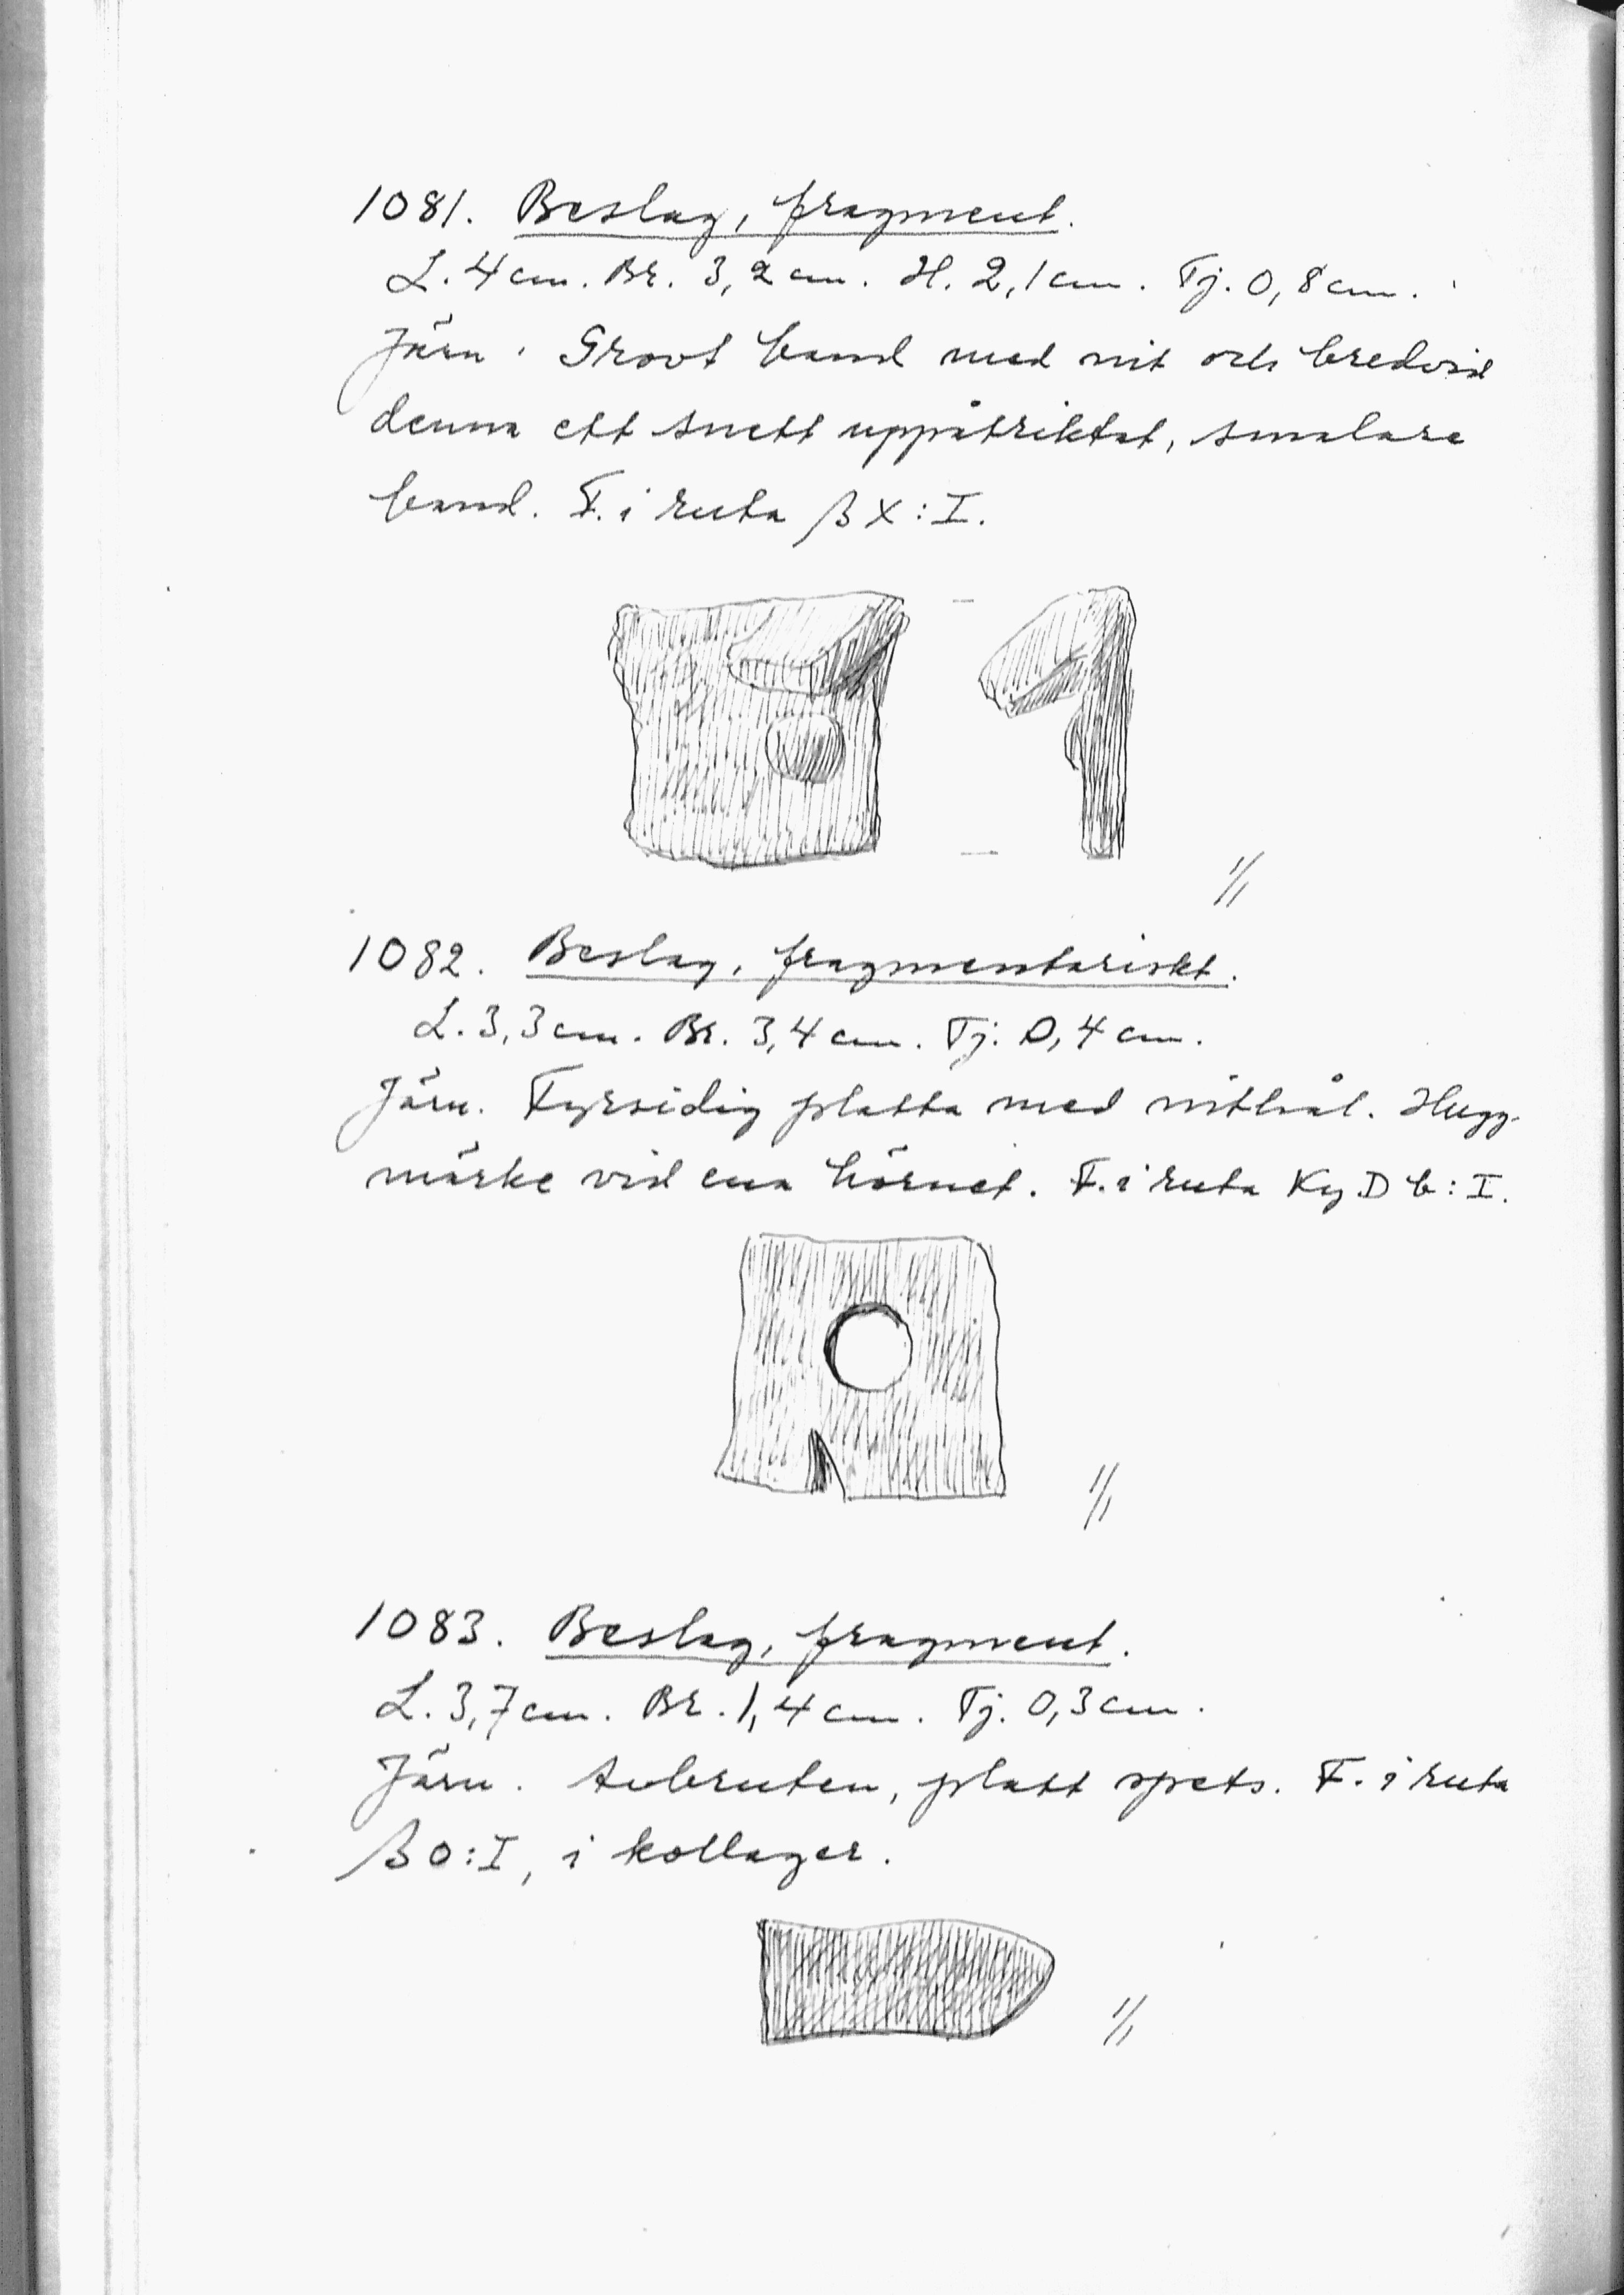 1081. Beslag, fragment.
L. 4 cm. Br. 3,2 cm. H. 2,1 cm. Tj. 0,8 cm.
Järn. Grovt band med nit och bredvid
denna ett snett uppåtriktat, smalare
band. F. i ruta β X : I.
1/1
1082. Beslag, fragmentariskt.
L. 3,3 cm. Br. 3,4 cm. Tj. 0,4 cm.
Järn. Fyrsidig platta med nithål. Hugg-
märke vid ena hörnet. F. i ruta Ky. D b : I.
1/1
1083. Beslag, fragment.
L. 3,7 cm. Br. 1,4 cm. Tj. 0,3 cm.
Järn. Avbruten, platt spets. F. i ruta
β O : I, i kollager.
1/1